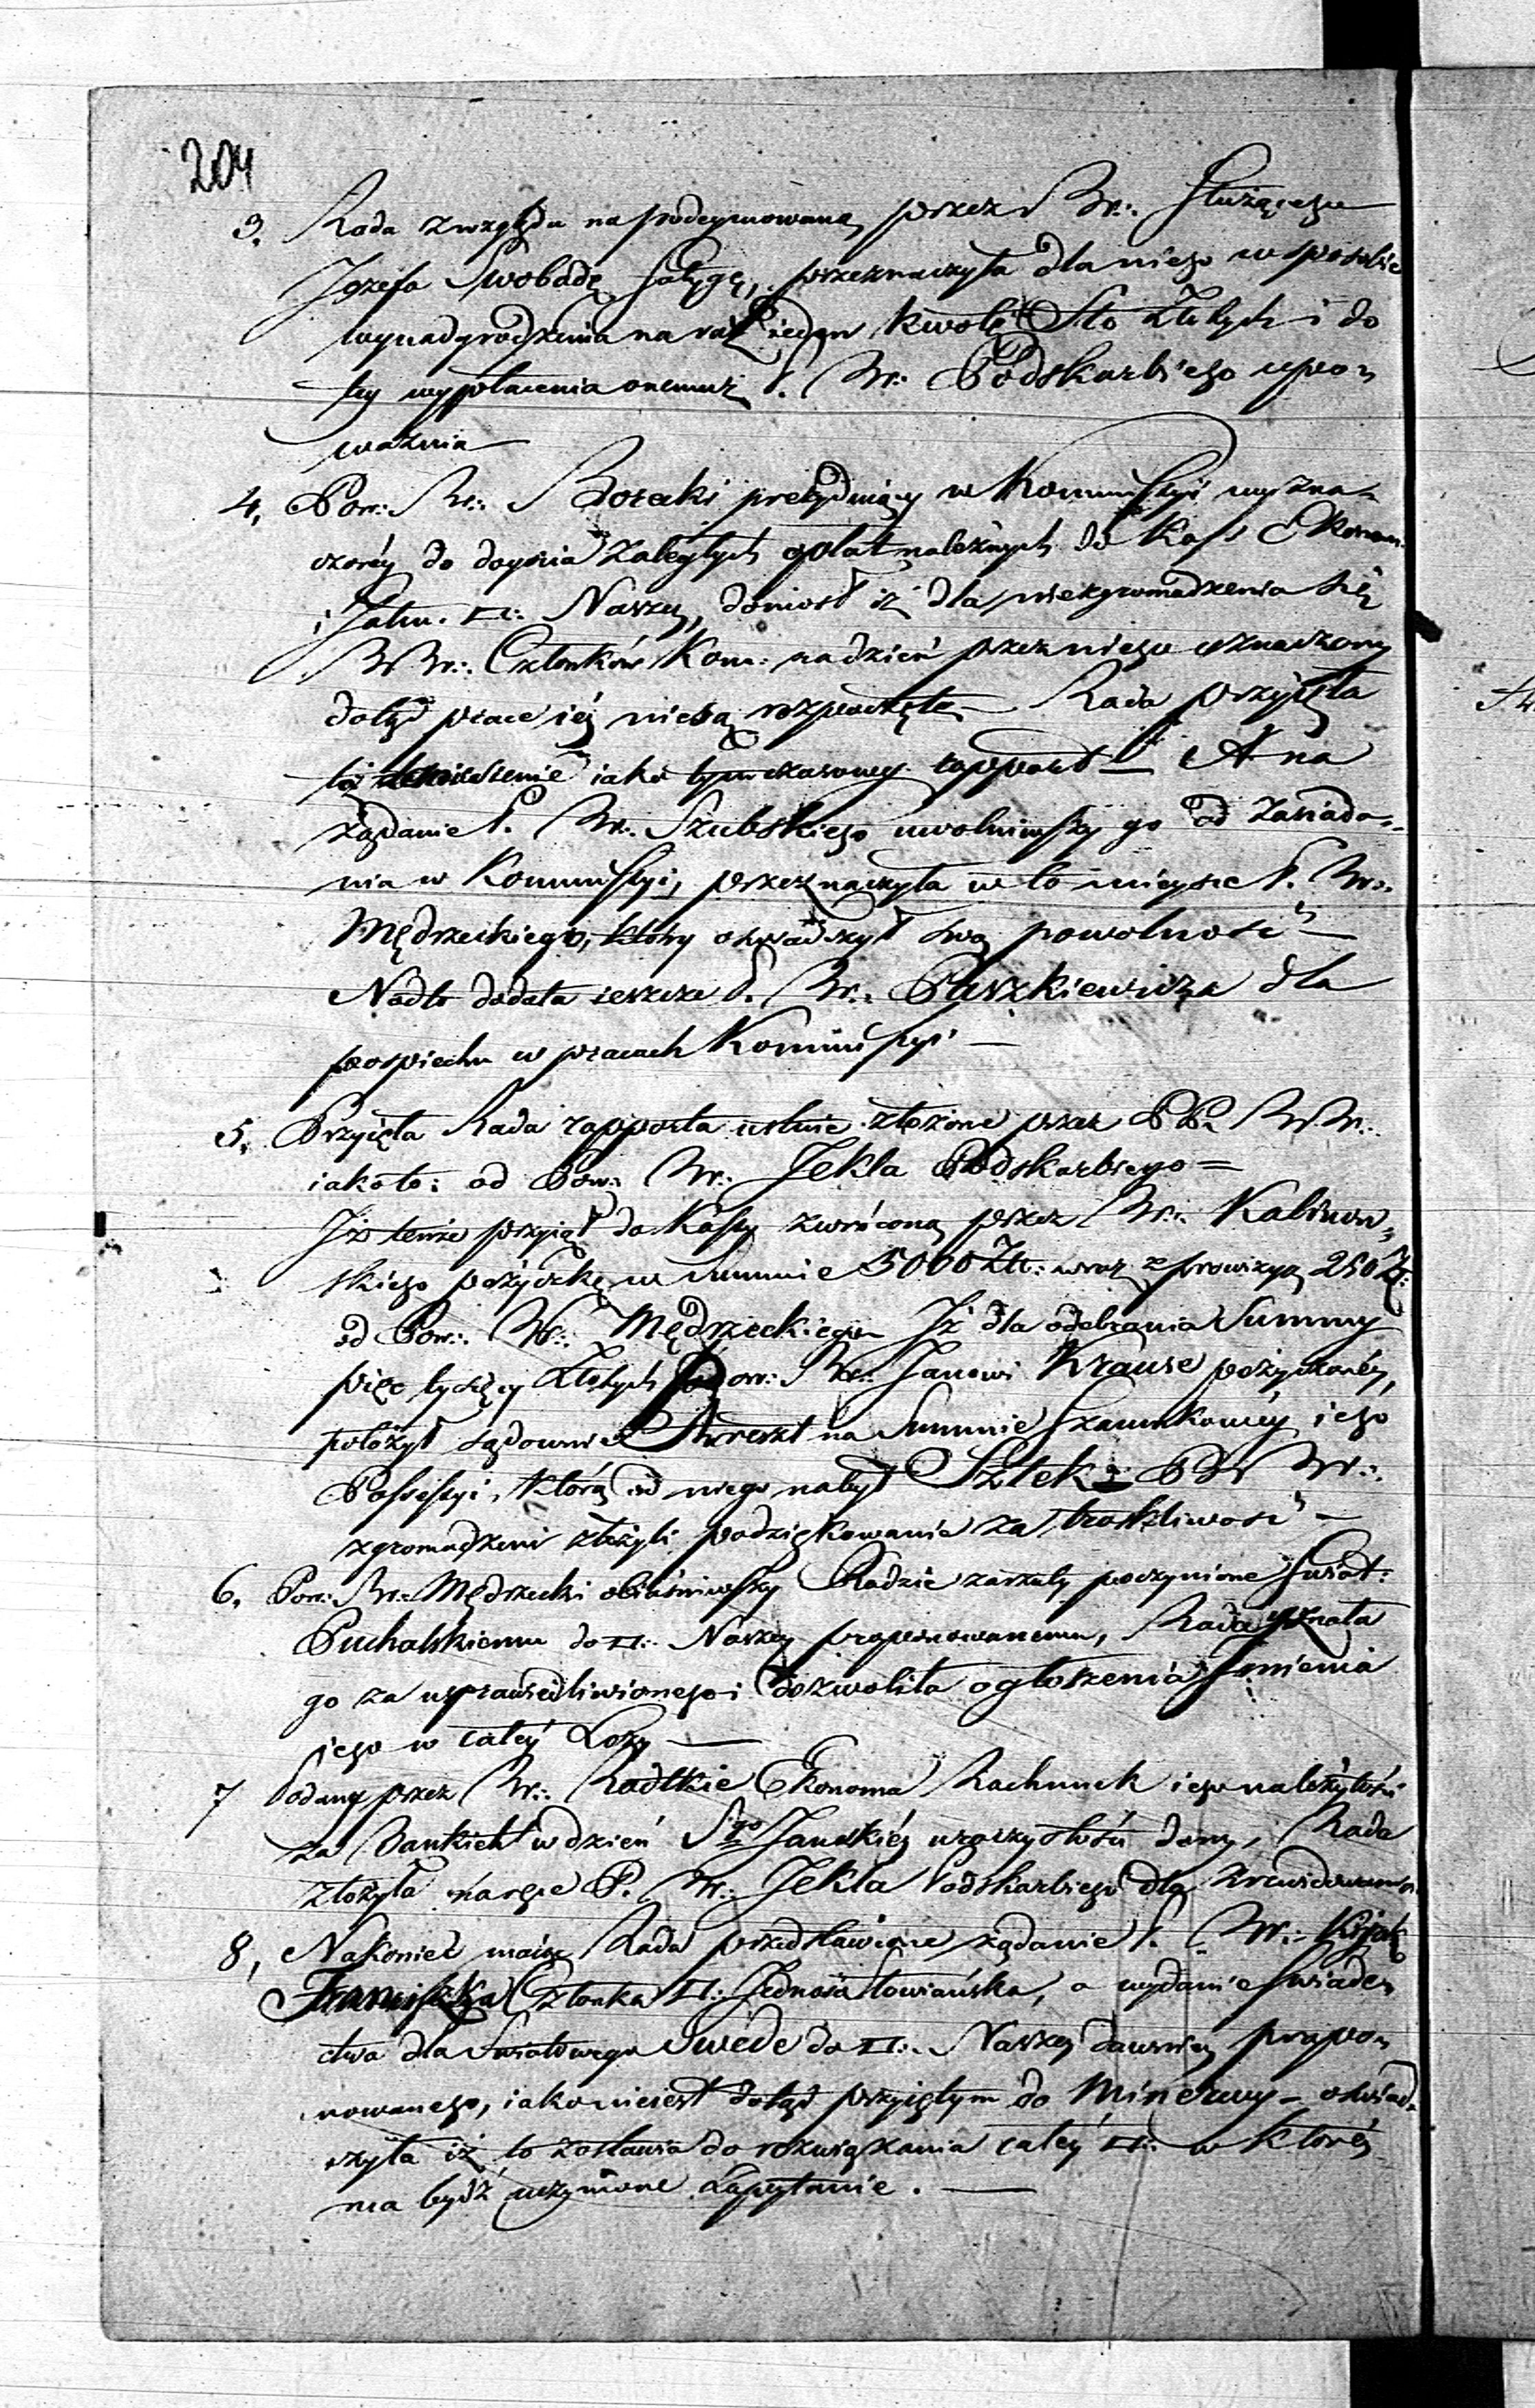 204
3. Rada zwzględu na podeymowaną przez Br∴ Służącego
Jozefa Swobodę fatygę, przeznaczyła dla niego w sposobie
wynadgrodzenia na raz ieden kwotę Sto Złotych i do
tey wypłacenia onemuż P. Br∴ Podskarbiego upo-
ważnia —
4, Pow∴ Br∴ Boraki prezyduiący w Kommissyi wyzna-
czonéy do doyścia zaległych opłat należnych do Kass Ekonom.
i Jałm. □∴ Naszey, doniosł iż dla niezgromadzenia się
BBr∴ Członków Kom: na dzień przez niego oznaczony
dotąd prace iéy nie są rozpoczęte — Rada przyięła
to doniesienie iako tymczasowy rapport — A na
żądanie P. Br∴ Szubskiego uwolniwszy go od zasiada-
nia w Kommissyi, przeznaczyła w to mieysce P. Br∴
Mędrzeckiego, który oświadczył swą powolność —
Nadto dodała ieszcze P. Br∴ Paszkiewicza dla
pospiechu w pracach Kommissyi —
5, Przyięła Rada rapporta ustnie złożone przez PP. BBr∴
iakoto: od Pow∴ Br∴ Jekla Podskarbiego =
Iż tenże przyiął do Kassy zwróconą przez Br∴ Kalinow-
skiego pożyczkę w summie 5000 Zł: wraz z prowizyą 250 Zł:
od Pow∴ Br∴ Mędrzeckiego Iż dla odebrania Summy
pięć tysięcy Złotych Pow∴ Br∴ Janowi Krause pożyczonéy,
położył sądownie Areszt na Summie szacunkowéy iego
Possessyi, którą od niego nabył Sztek : PP BBr∴
zgromadzeni złożyli podziękowanie za troskliwość —
6, Pow∴ Br∴ Mędrzecki obiaśniwszy Radzie zarzuty poczynione Świat:
Puchalskiemu do □∴ Naszey proponowanemu, Rada uznała
go za usprawiedliwionego i dozwoliła ogłoszenia Imienia
jego w całéy Loży —
7 Podany przez Br∴ Radtkie Ekonoma Rachunek iego należytości
za Bankiet w dzień Sgo Jańskiéy uroczystości dany, Rada
złożyła na ręce P. Br∴ Jekla Podskarbiego dla zrewidowania
8, Nakoniec maiąc Rada przedstawione żądanie P. Br∴
Franciszka Członka □∴ Jedność Słowiańska, o wydanie świadec-
ctwa dla Światowego Swede do □∴ Naszey dawniey propo-
nowanego, iako nieiest dotąd przyiętym do Minerwy — oświad-
czyła iż to zostawia do rozwiązania całéy □∴ w któréy
ma bydź uczynione Zapytanie. —